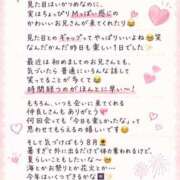 見た目はいかつめなのに、
実はちょっぴりMっぽい感じの
かわいいお兄さんが来てくれたり😂
見た目とのギャップってやっぱりいいよね🤭笑
なんだかんだ昨日も楽しい1日でした✨
最近は初めましてのお兄さんとも、
気づいたら普通にいろんな話して
笑ってることが多くて
時間経つのがほんとに早いー！
もちろん、いつも会いに来てくれる
仲良しさんもありがとう
何回会っても「今日も楽しかったな」って
思わせてもらえるの嬉しいです😊
そして気づけばもう8月
暑すぎて外に出るだけで溶かされそうだけど、
夏らしいこともしたいな〜
海とかお祭りとか花火とか…
今年はいくつできるかな